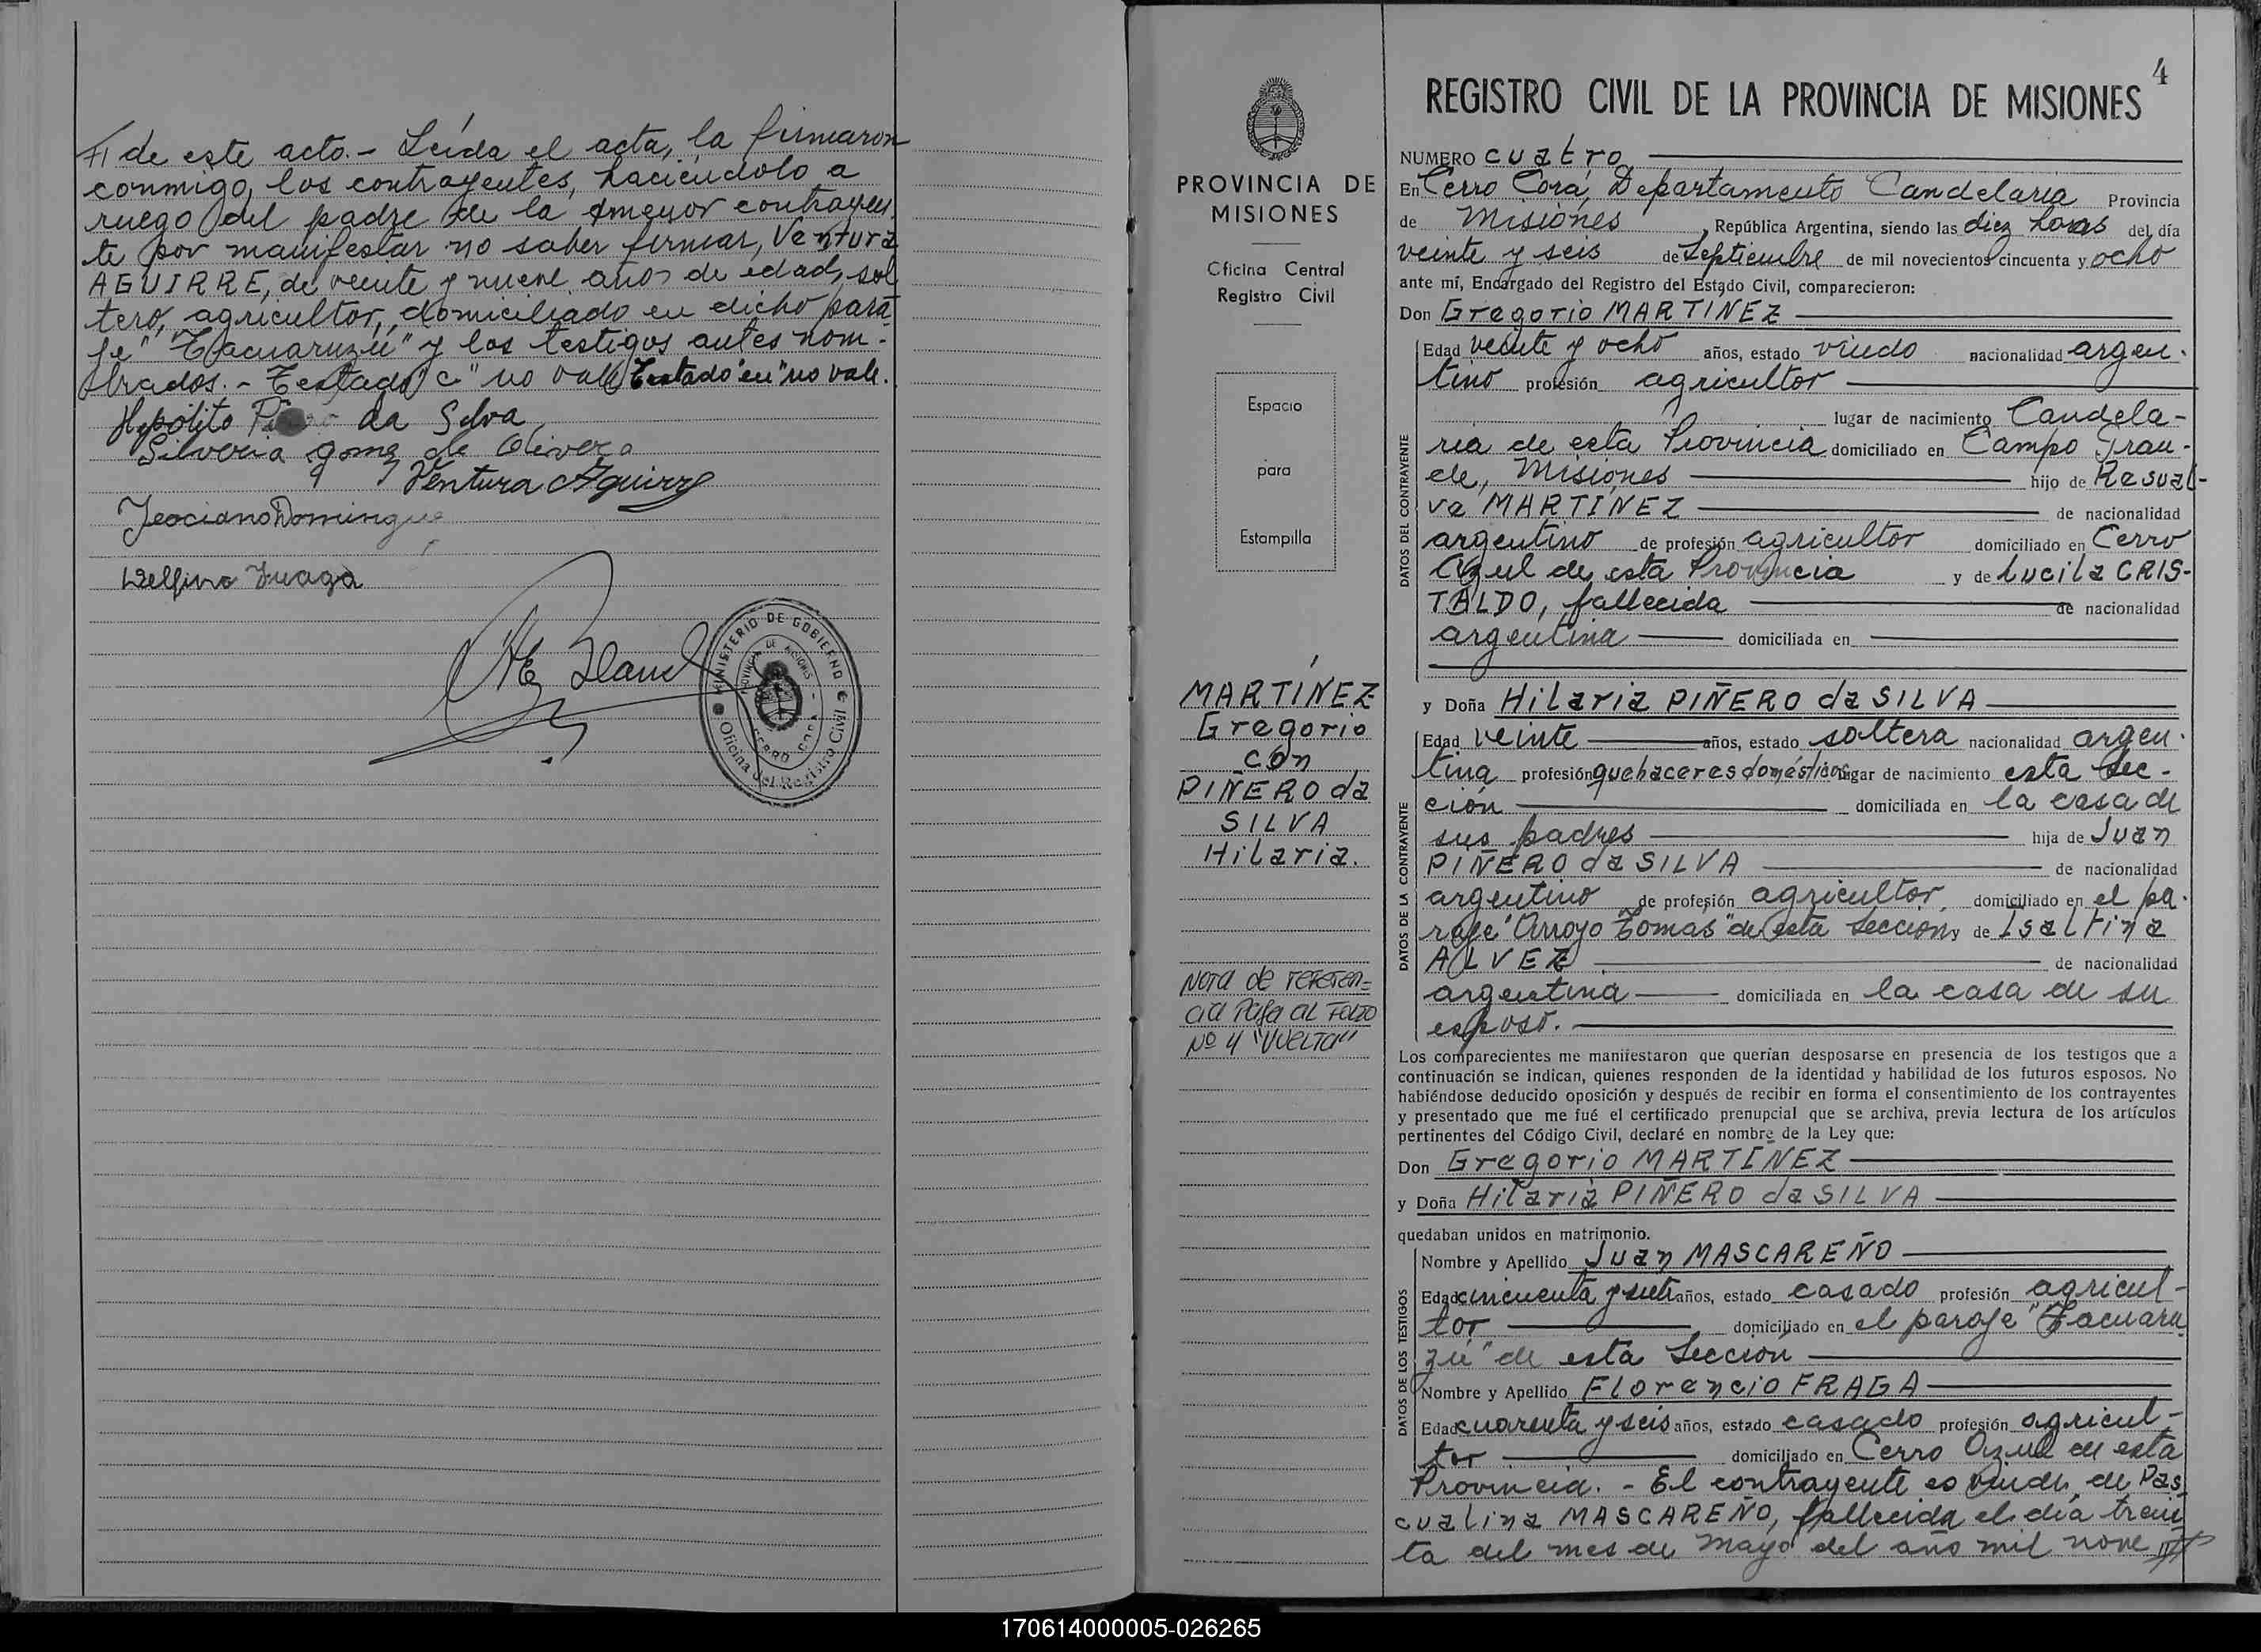 de este acto.- Leída el acta, la firmaron
conmigo, los contrayentes, haciéndolo a
ruego del padre de la menor contrayen-
te por manifestar no saber firmar, Ventura
AGUIRRE, de veinte y nueve años de edad, sol
tero, agricultor, domiciliado en dicho para-
je "Tacuaruzú" y los testigos antes nom-
brados.- Testado "c" no vale Testado "en" no vale.
Hypólito da Silva
Silveria gomz de Olivera
Ventura Aguirre
Domingue
Delfino
MINISTERIO DE GOBIERNO
PROVINCIA DE MISIONES
CERRO CORÁ
Oficina del Registro Civil
PROVINCIA DE
MISIONES
Oficina Central
Registro Civil
Espacio
para
Estampilla
MARTÍNEZ
Gregorio
con
PIÑERO da
SILVA
Hilaria.
Nota de referen-
cia pasa al Folio
Nº 4 "Vuelta"
4
REGISTRO CIVIL DE LA PROVINCIA DE MISIONES
NUMERO cuatro
En Cerro Corá, Departamento Candelaria Provincia
de Misiones, República Argentina, siendo las diez horas del día
veinte y seis de Septiembre de mil novecientos cincuenta y ocho
ante mí, Encargado del Registro del Estado Civil, comparecieron:
Don Gregorio MARTÍNEZ
DATOS DEL CONTRAYENTE
Edad veinte y ocho años, estado viudo nacionalidad argen-
tino profesión agricultor
lugar de nacimiento Candela-
ria de esta Provincia domiciliado en Campo Gran-
de, Misiones hijo de Resual-
va MARTÍNEZ de nacionalidad
argentino de profesión agricultor domiciliado en Cerro
Azul de esta Provincia y de Lucila CRIS-
TALDO, fallecida de nacionalidad
argentina domiciliada en
y Doña Hilaria PIÑERO da SILVA
DATOS DE LA CONTRAYENTE
Edad veinte años, estado soltera nacionalidad argen-
tina profesión quehaceres domésticos lugar de nacimiento esta Sec-
ción domiciliada en la casa de
sus padres hija de Juan
PIÑERO da SILVA de nacionalidad
argentino de profesión agricultor, domiciliado en el pa-
raje "Arroyo Tomás" de esta Sección y de Isaltina
ALVEZ de nacionalidad
argentina domiciliada en la casa de su
esposo.
Los comparecientes me manifestaron que querían desposarse en presencia de los testigos que a
continuación se indican, quienes responden de la identidad y habilidad de los futuros esposos. No
habiéndose deducido oposición y después de recibir en forma el consentimiento de los contrayentes
y presentado que me fué el certificado prenupcial que se archiva, previa lectura de los artículos
pertinentes del Código Civil, declaré en nombre de la Ley que:
Don Gregorio MARTÍNEZ
y Doña Hilaria PIÑERO da SILVA
quedaban unidos en matrimonio.
DATOS DE LOS TESTIGOS
Nombre y Apellido Juan MASCAREÑO
Edad cincuenta y siete años, estado casado profesión agricul-
tor domiciliado en el paraje "Tacuaru
zú" de esta Sección
Nombre y Apellido Florencio FRAGA
Edad cuarenta y seis años, estado casado profesión agricul-
tor domiciliado en Cerro Azul de esta
Provincia.- El contrayente es viudo, de Pas
cualina MASCAREÑO, fallecida el día trein
ta del mes de Mayo del año mil nove
170614000005-026265